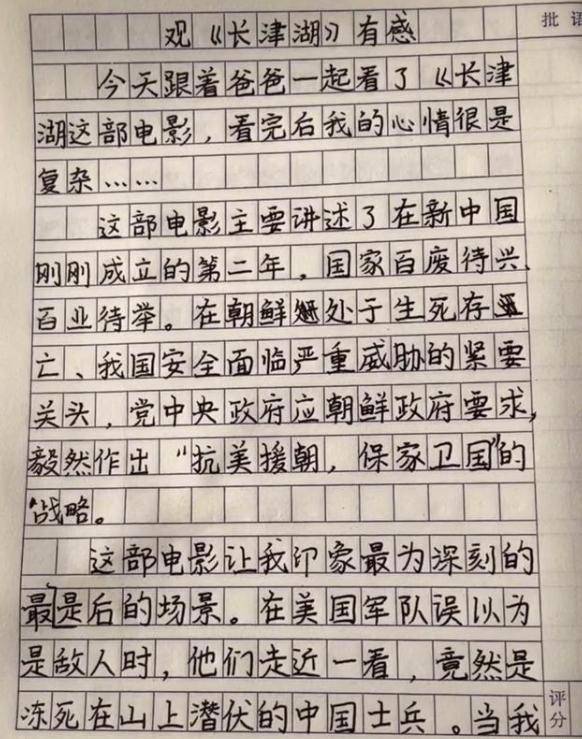 批语
观《长津湖》有感
今天跟着爸爸一起看了《长津
湖这部电影，看完后我的心情很是
复杂……
这部电影主要讲述了在新中国
刚刚成立的第二年，国家百废待兴、
百业待举。在朝鲜处于生死存
亡、我国安全面临严重威胁的紧要
关头，党中央政府应朝鲜政府要求，
毅然作出“抗美援朝，保家卫国”的
战略。
这部电影让我印象最为深刻的
最是后的场景。在美国军队误以为
是敌人时，他们走近一看，竟然是
冻死在山上潜伏的中国士兵。当我
评分